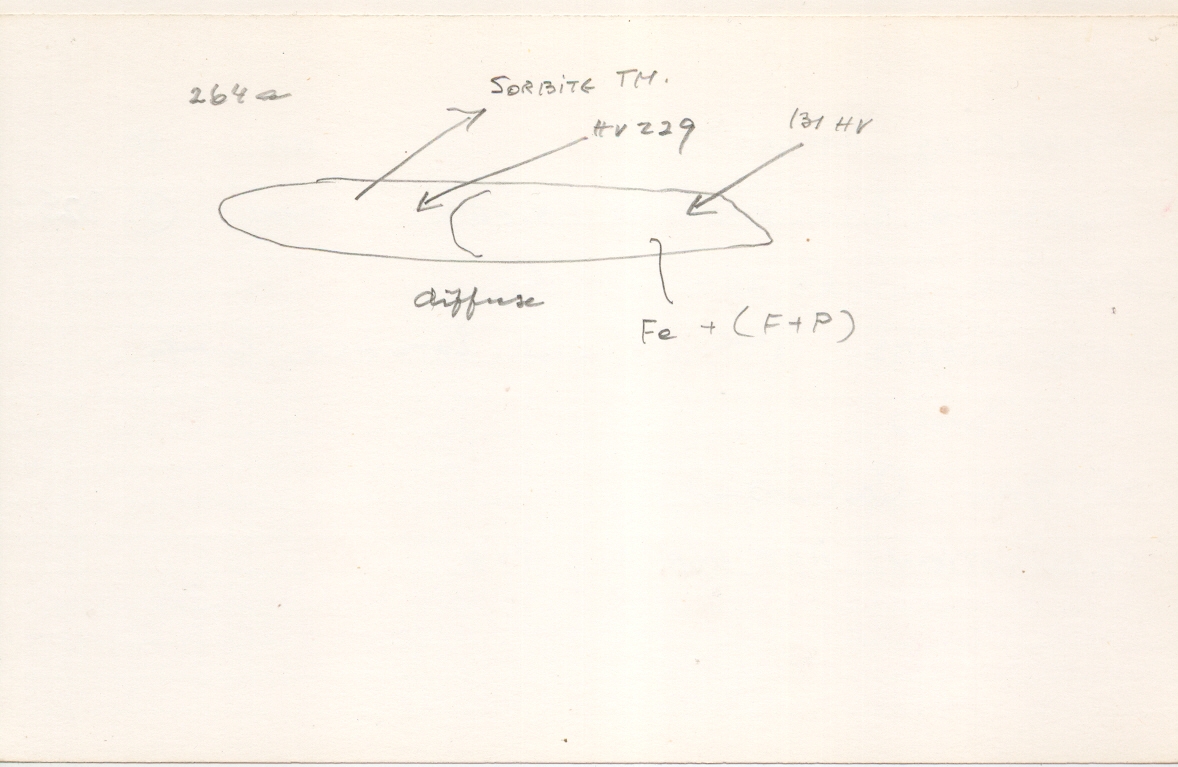 264a
SORBITE TM.
HV 229
131 HV
diffuse
Fe + (F+P)